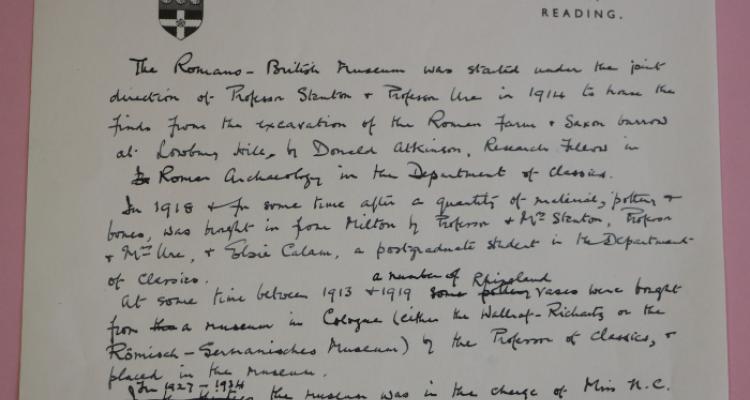 READING.
The Romano-British Museum was started under the joint
direction of Professor Stenton & Professor Ure in 1914 to house the
finds from the excavation of the Roman Farm & Saxon barrow
at Lowbury Hill, by Donald Atkinson, Research Fellow in
Roman Archaeology in the Department of Classics.
In 1918 & for some time after a quantity of material, pottery &
bones, was brought in from Milton by Professor & Mrs Stenton, Professor
& Mrs Ure, & Elsie Calam, a postgraduate student in the Department
of Classics.
a number of Rhineland
At some time between 1913 & 1919 some pottery vases were bought
from a museum in Cologne (either the Wallraf-Richartz or the
Römisch-Germanisches Museum) by the Professor of Classics, &
placed in the museum.
In 1927-1934
the museum was in the charge of Miss N.C.